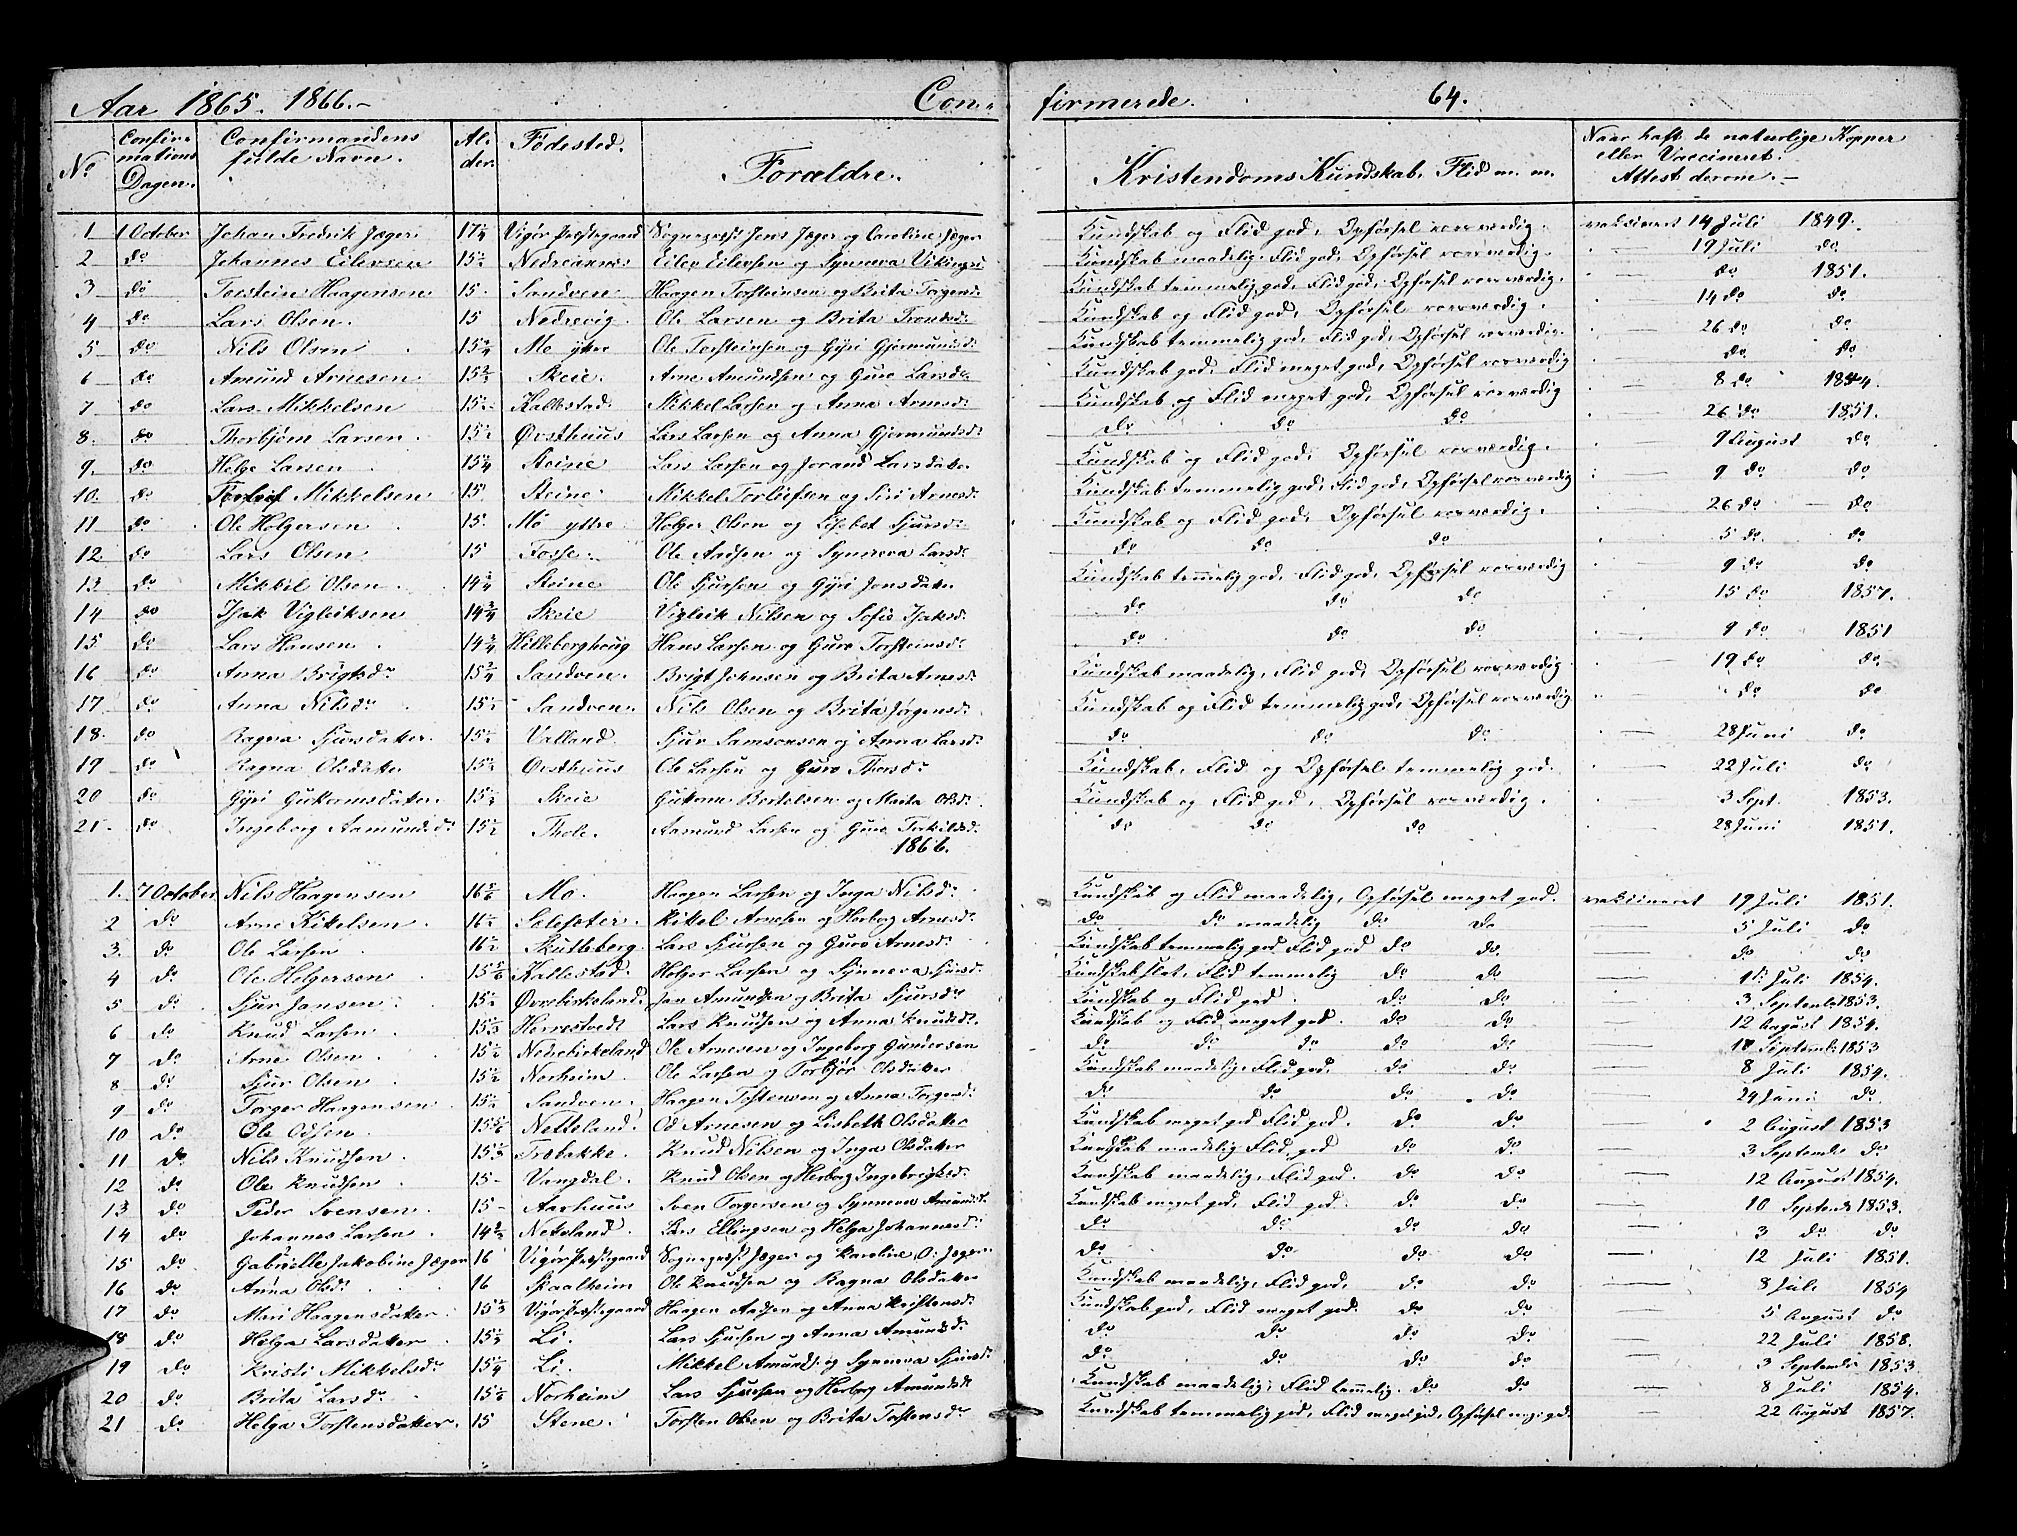 Aar 1865. 1866.- Con- firmerede. 64.
No Confirmations Dagen. Confirmandens fulde Navn. Alder. Fødested. Forældre. Kristendoms Kundskab, Flid m. m. Naar haft de naturlige Kopper eller Vaccineret. Attest derom.-
1 1 October Johan Fredrik Jæger 17 1/4 Vigør Præstegaard Sognepræst Jens Jæger og Caroline Jæger Kundskab og Flid god, Opførsel rosværdig. vaksineret 14 Juli 1849.
2 do Johannes Eilevsen 15 1/2 Nedreaxnes Eilev Eilevsen og Synneva Vikingsd Kundskab maadelig, Flid god, Opførsel rosværdig. 19 Juli do
3 do Torstein Haagensen 15 Sandven Haagen Torsteinsen og Brita Torgersd. Kundskab temmelig god, Flid god, Opførsel rosværdig. do 1851.
4 do Lars Olsen. 15 Nedrevig. Ole Larsen og Brita Trondsd. Kundskab og Flid god, Opførsel rosværdig. 14 do do
5 do Nils Olsen 15 3/4 Mo ytre Ole Torsteinsen og Gyri Gjermundsd. Kundskab temmelig god, Flid god, Opførsel rosværdig. 26 do do
6 do Amund Arnesen 15 Skeie. Arne Amundsen og Guro Larsdr Kundskab god, Flid meget god, Opførsel rosværdig do do
7 do Lars Mikkelsen 15 1/2 Kallestad. Mikkel Larsen og Anna Arnesd. Kundskab og Flid meget god, Opførsel rosværdig 8 do 1854.
8. do Thorbjørn Larsen. 15 1/2 Øvsthuus Lars Larsen og Anna Gjermundsd. do do do 26 do 1851.
9. do Helge Larsen 15 1/4 Steine Lars Larsen og Jorand Larsdater Kundskab og Flid god, Opførsel rosværdig. 9 August do
10. do Torleif Mikkelsen 15 Steine Mikkel Torleifsen og Siri Arnesd. Kundskab temmelig god, Flid god, Opførsel rosværdig 9 do do
11 do Ole Holgersen 15. Mo ytre Holger Olsen og Lisbet Sjursd. Kundskab og Flid god, Opførsel rosværdig. 26 do do
12 do Lars Olsen 15 Fosse. Ole Aadsen og Synneva Larsdr do do do 5 do do
13. do Mikkel Olsen. 14 3/4 Steine Ole Sjursen og Gyri Jonsdater Kundskab temmelig god, Flid god, Opførsel rosværdig 9 do do
14 do Isak Vigleiksen 14 3/4 Skeie Vigleik Nilsen og Sofie Isaksd. do do do 15 do 1857.
15. do Lars Hansen. 14 3/4 Hilleberghoug Hans Larsen og Guro Torsteinsd. do do do 9 do 1851
16 do Anna Brigtsdr 15 3/4 Sandven. Brigt Johnsen og Brita Arnesd. Kundskab maadelig, Flid god, Opførsel rosværdig. 19 do do
17. do Anna Nilsdr 15 1/2 Sandven. Nils Olsen og Brita Jørgensd. Kundskab og Flid temmelig god, Opførsel rosværdig do do
18. do Ragna Sjursdater. 15 1/2 Valland Sjur Samsonsen og Anna Larsd. do do do 28 Juni do
19 do Ragna Olsdater 15 1/2 Øvsthuus Ole Larsen og Guro Thorsdr Kundskab, Flid og Opførsel temmelig god. 22 Juli do
20 do Gyri Gutormsdater. 15 1/2 Skeie Gutorm Bertelsen og Marta Olsd. Kundskab og Flid god, Opførsel rosværdig. 3 Sept. 1853.
21. do Ingeborg Aamundsdr 15 1/2 Thole. Aamund Larsen og Guro Torkilsd. do do do 28 Juni 1851.
1866.
1. 7 October Nils Haagensen 16 Mo Haagen Larsen og Inga Nilsdr Kundskab og Flid maadelig, Opførsel meget god. vaksineret 19 Juli 1851.
2 do Arne Kikelsen 16 1/2 Soleseter. Kikel Arnesen og Herborg Arnesdr do do maadelig do do 5 Juli do
3. do Ole Larsen 16 1/2 Skutleberg. Lars Sjursen og Guro Arnesd. Kundskab temmelig god, Flid god do do. do do.
4 do Ole Holgersen 15 Kallestad. Holger Larsen og Synneva Sjursd. Kundskab slet, Flid temmelig do do Juli 1854.
5 do Sjur Jansen 15 1/2 Øvrebirkeland. Jan Amundsen og Brita Sjursdr Kundskab og Flid god. do do. 3 September 1853.
6 do Knud Larsen 15 Herrestvedt Lars Knudsen og Anna Knudsdr Kundskab og Flid meget god. do do 12 August 1854.
7 do Arne Olsen. 15 1/2 Nedrebirkeland Ole Arnesen og Ingeborg Gundersen do do do do do. September 1853
8 do Sjur Olsen 15 1/2 Norheim. Ole Larsen og Torbjør Olsdater Kundskab maadelig, Flid god, do do. 8 Juli 1854.
9 do Torger Haagensen 15 1/2 Sandven. Haagen Torstensen og Anna Torgersd. do do do do 24 Juni do
10 do Ole Odsen. 15 Netteland. Od Arnesen og Lisbeth Olsdater Kundskab meget god Flid god. do do 2 August 1853
11 do Nils Knudsen. 15 1/3 Træbakke. Knud Nilsen og Inga Olsdater Kundskab maadelig Flid god do do 3 September do
12 do Ole Knudsen 15- Vangdal. Knud Olsen og Herborg Ingebrigtsd. Kundskab maadelig, Flid god. do do 12 August 1854.
13 do Peder Svensen. 15- Aarhuus Sven Torgersen og Synneva Amundsdr Kundskab meget god, Flid god. do do 10 Septemb 1853.
14. do Johannes Larsen 14 Neteland. Lars Ellingsen og Helga Johannesd. do do do do 3 do do
15 do Gabrielle Jakobine Jæger 16 Vigør Præstegaard Sognepræst Jæger og Karoline O. Jæger do do do do 12 Juli 1851.
16 do Anna Olsd. 16 Skaalheim Ole Knudsen og Ragna Olsdater Kundskab maadelig, Flid god, do do. 8 Juli 1854
17 do Mari Haagensdater. 15 1/3 Vigør Præstegaard Haagen Aadsen og Anna Kristensd. Kundskab god, Flid meget god. do do. 5 August do
18 do Helga Larsdater 15 Li. Lars Sjursen og Anna Amundsdr do do do do 22 Juli 1858.
19 do Kristi Mikkelsdr 15 1/4 Li. Mikkel Amunds. og Synneva Sjursdr do do do do 3 September 1853.
20 do Brita Larsdr 15 Norheim Lars Sjursen og Herborg Amundsdr Kundskab maadelig, Flid temmelig. do do 8 Juli 1854.
21 do Helga Torstensdater. 15 Stene. Torsten Olsen og Brita Torstensdr Kundskab temmelig god, Flid meget god, Opførsel meget god. 22 August 1857.